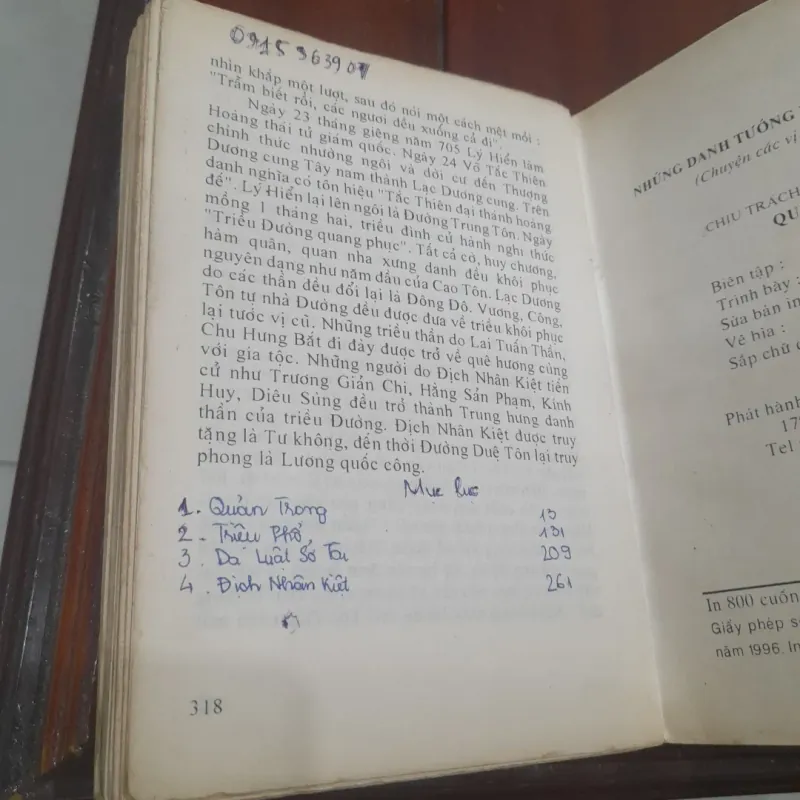 0915 363907
nhìn khắp một lượt, sau đó nói một cách mệt mỏi :
"Trẫm biết rồi, các ngươi đều xuống cả đi".
Ngày 23 tháng giêng năm 705 Lý Hiển làm
Hoàng thái tử giám quốc. Ngày 24 Võ Tắc Thiên
chính thức nhường ngôi và dời cư đến Thượng
Dương cung Tây nam thành Lạc Dương cung. Trên
danh nghĩa có tôn hiệu "Tắc Thiên đại thánh hoàng
đế". Lý Hiển lại lên ngôi là Đường Trung Tôn. Ngày
mồng 1 tháng hai, triều đình cử hành nghi thức
"Triều Đường quang phục". Tất cả cờ, huy chương,
hàm quân, quan nha xưng danh đều khôi phục
nguyên dạng như năm đầu của Cao Tôn. Lạc Dương
do các thần đều đổi lại là Đông Đô. Vương, Công,
Tôn tự nhà Đường đều được đưa về triều khôi phục
lại tước vị cũ. Những triều thần do Lai Tuấn Thần,
Chu Hưng Bắt đi đày được trở về quê hương cùng
với gia tộc. Những người do Địch Nhân Kiệt tiến
cử như Trương Giản Chi, Hằng Sản Phạm, Kính
Huy, Diêu Sùng đều trở thành Trung hưng danh
thần của triều Đường. Địch Nhân Kiệt được truy
tặng là Tư không, đến thời Đường Duệ Tôn lại truy
phong là Lương quốc công.
Mục lục
1. Quản Trọng 13
2. Triệu Phổ 131
3. Da Luật Sở Tài 209
4. Địch Nhân Kiệt 261
318
NHỮNG DANH TƯỚNG
(Chuyện các vị
CHỊU TRÁCH
QU
Biên tập :
Trình bày :
Sửa bản in
Vẽ bìa :
Sắp chữ
Phát hành
17
Tel
In 800 cuốn
Giấy phép s
năm 1996. In